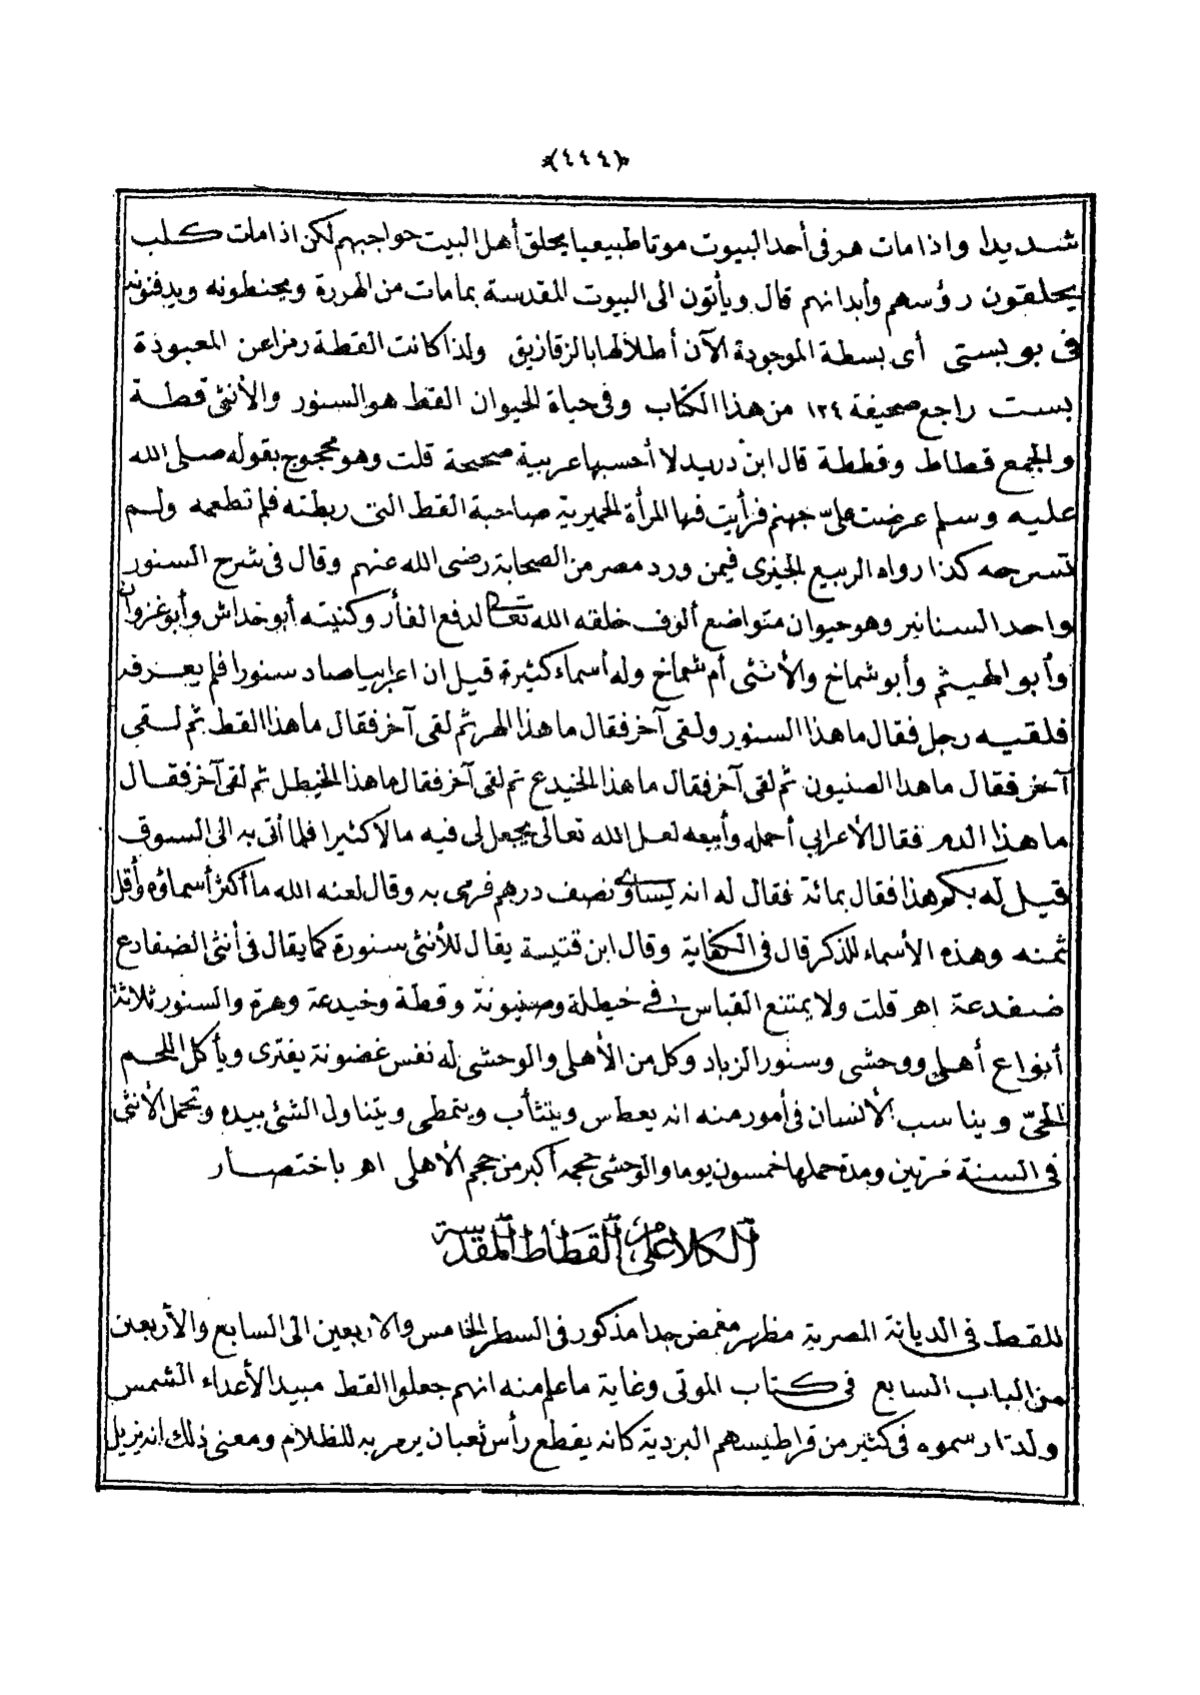 ﴿٤٤٤﴾
شديدا واذا مات هر فى أحد البيوت موتا طبيعيا يحلق أهل البيت حواجبهم لكن اذا مات كلب
يحلقون رؤسهم وأبدانهم قال ويأتون الى البيوت المقدسة بما مات من الهررة ويحنطونه ويدفنونه
فى بوبستى أى بسطة الموجودة الآن أطلالها بالزقازيق ولذا كانت القطة رمزا عن المعبودة
بست راجع صحيفة ١٢٤ من هذا الكتاب وفى حياة الحيوان القط هو السنور والأنثى قطة
والجمع قطاط وقططة قال ابن دريد لا أحسبها عربية صحيحة قلت وهو محجوج بقوله صلى الله
عليه وسلم عرضت علىّ جهنم فرأيت فيها المرأة الحميرية صاحبة القط التى ربطته فلم تطعمه ولم
تسرحه كذا رواه الربيع الجيزى فيمن ورد مصر من الصحابة رضى الله عنهم وقال فى شرح السنور
واحد السنانير وهو حيوان متواضع ألوف خلقه الله تعالى لدفع الفأر وكنيته أبو خداش وأبو غزوان
وأبو الهيثم وأبو شماخ والأنثى أم شماخ وله أسماء كثيرة قيل ان اعرابيا صاد سنورا فلم يعرفه
فلقيه رجل فقال ما هذا السنور ولقى آخر فقال ما هذا الهر ثم لقى آخر فقال ما هذا القط ثم لقى
آخر فقال ما هذا الضيون ثم لقى آخر فقال ما هذا الخيدع ثم لقى آخر فقال ما هذا الخيطل ثم لقى آخر فقال
ما هذا الدم فقال الأعرابي أحمله وأبيعه لعل الله تعالى يجعل لى فيه مالا كثيرا فلما أتى به الى السوق
قيل له بكم هذا فقال بمائة فقال له انه يساوى نصف درهم فرمى به وقال لعنه الله ما أكثر أسماؤه وأقل
ثمنه وهذه الأسماء للذكر قال فى الكفاية وقال ابن قتيبة يقال للأنثى سنورة كما يقال فى أنثى الضفادع
ضفدعة اهـ قلت ولا يمتنع القياس فى خيطلة وضيونة وقطة وخيدعة وهرة والسنور ثلاثة
أنواع أهلى ووحشى وسنور الزباد وكل من الأهلى والوحشى له نفس غضوبة يفترى ويأكل اللحم
الحىّ ويناسب الأنسان فى أمور منه انه يعطس ويتثأب ويتمطى ويتناول الشئ بيده وتحمل الأنثى
فى السنة مرتين ومدة حملها خمسون يوما والوحشى حجمه أكبر من حجم الأهلى اهـ باختصار
الكلام على القطاط المقدسة
للقط فى الديانة المصرية مظهر مغمض جدا مذكور فى السطر الخامس والاربعين الى السابع والأربعين
من الباب السابع فى كتاب الموتى وغاية ما علم منه انهم جعلوا القط مبيد الأعداء الشمس
ولذا رسموه فى كثير من قراطيسهم البردية كانه يقطع رأس ثعبان يرمز به للظلام ومعنى ذلك انه يزيل